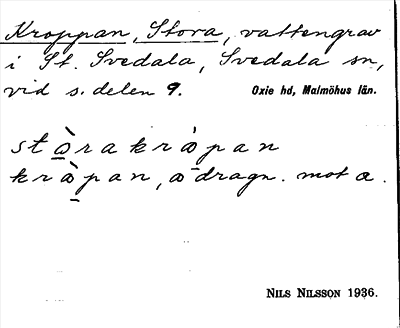 Kroppan, Stora, vattengrav
i St. Svedala, Svedala sn,
vid s. delen 9. Oxie hd, Malmöhus län.
stɷ̀rakrȧpan
krɷ̀pan, ɷ dragn. mot a.
NILS NILSSON 1936.